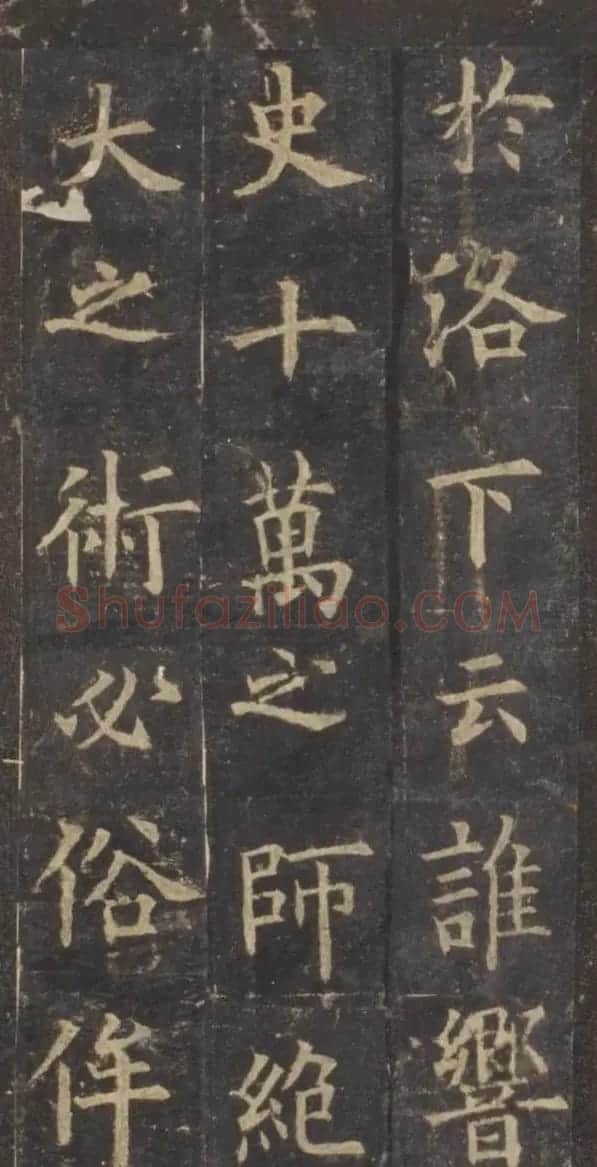 於洛下云誰響
史十萬之師絕
大之術必俗侔
Shufaziliao.COM